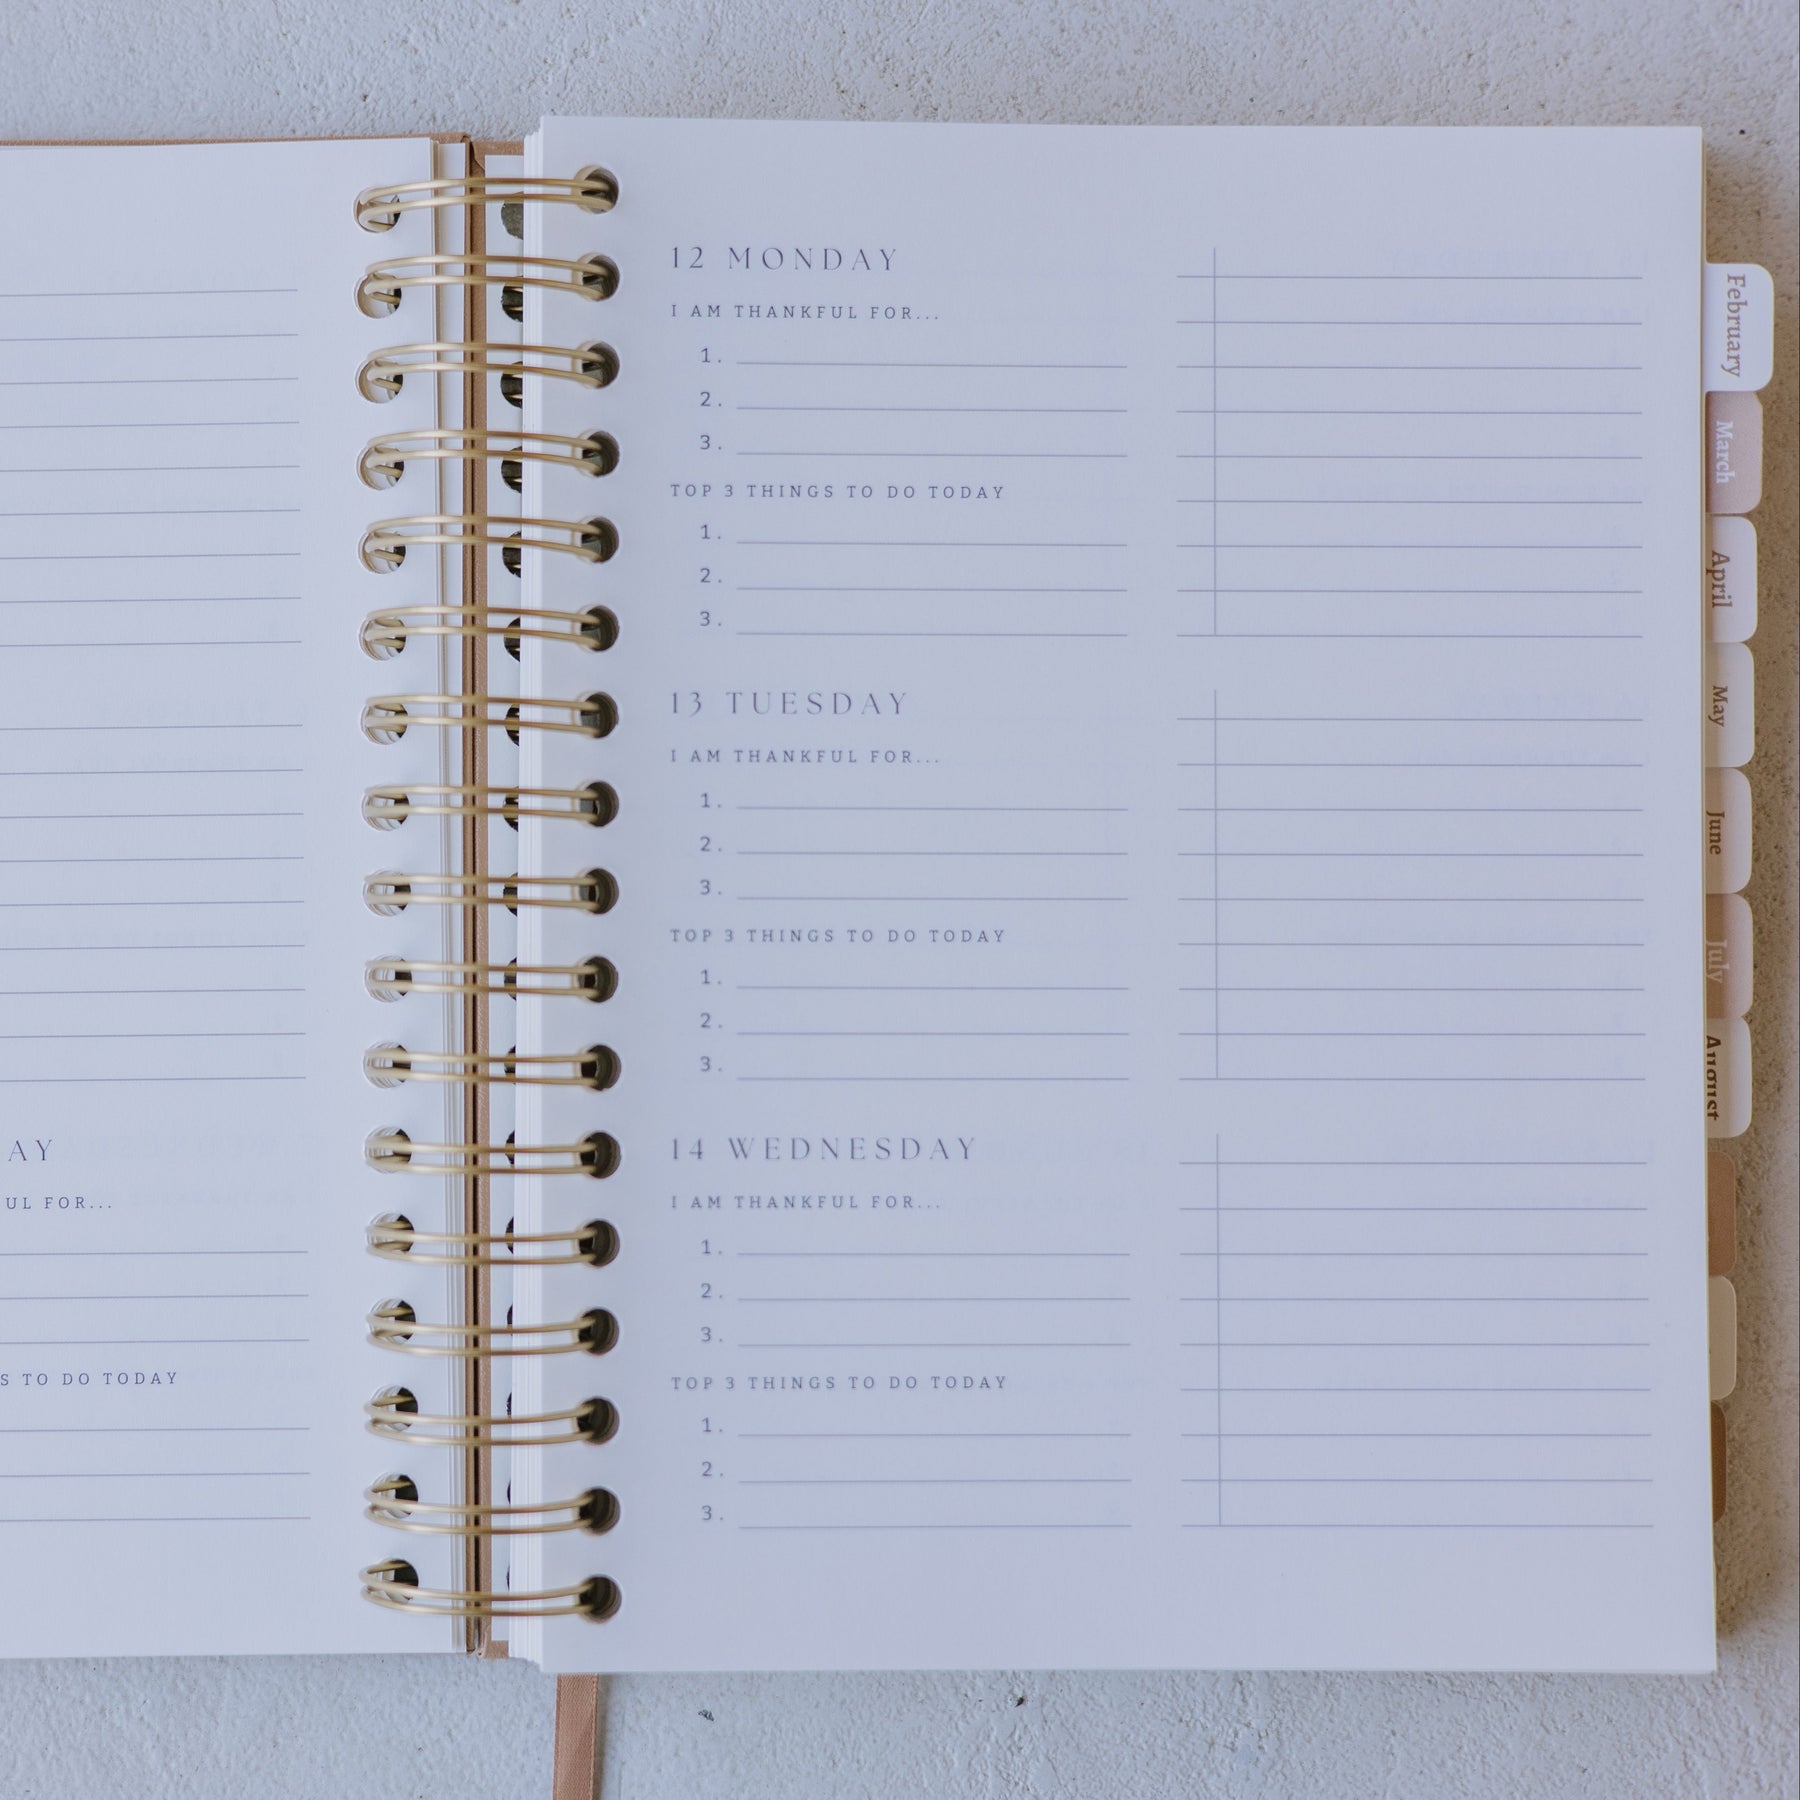 AY
UL FOR...
S TO DO TODAY
12 MONDAY
I AM THANKFUL FOR...
1.
2.
3.
TOP 3 THINGS TO DO TODAY
1.
2.
3.
13 TUESDAY
I AM THANKFUL FOR...
1.
2.
3.
TOP 3 THINGS TO DO TODAY
1.
2.
3.
14 WEDNESDAY
I AM THANKFUL FOR...
1.
2.
3.
TOP 3 THINGS TO DO TODAY
1.
2.
3.
February
March
April
May
June
July
August